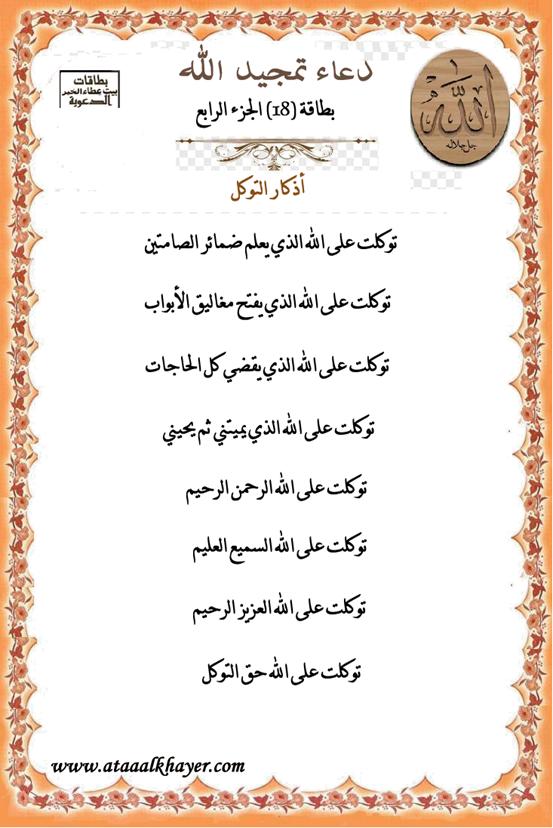 دعاء تمجيد الله
بطاقات
بيت عطاء الخير
الدعوية
بطاقة (18) الجزء الرابع
الله
جل جلاله
أذكار التوكل
توكلت على الله الذي يعلم ضمائر الصامتين
توكلت على الله الذي يفتح مغاليق الأبواب
توكلت على الله الذي يقضي كل الحاجات
توكلت على الله الذي يميتني ثم يحيني
توكلت على الله الرحمن الرحيم
توكلت على الله السميع العليم
توكلت على الله العزيز الرحيم
توكلت على الله حق التوكل
www.ataaalkhayer.com